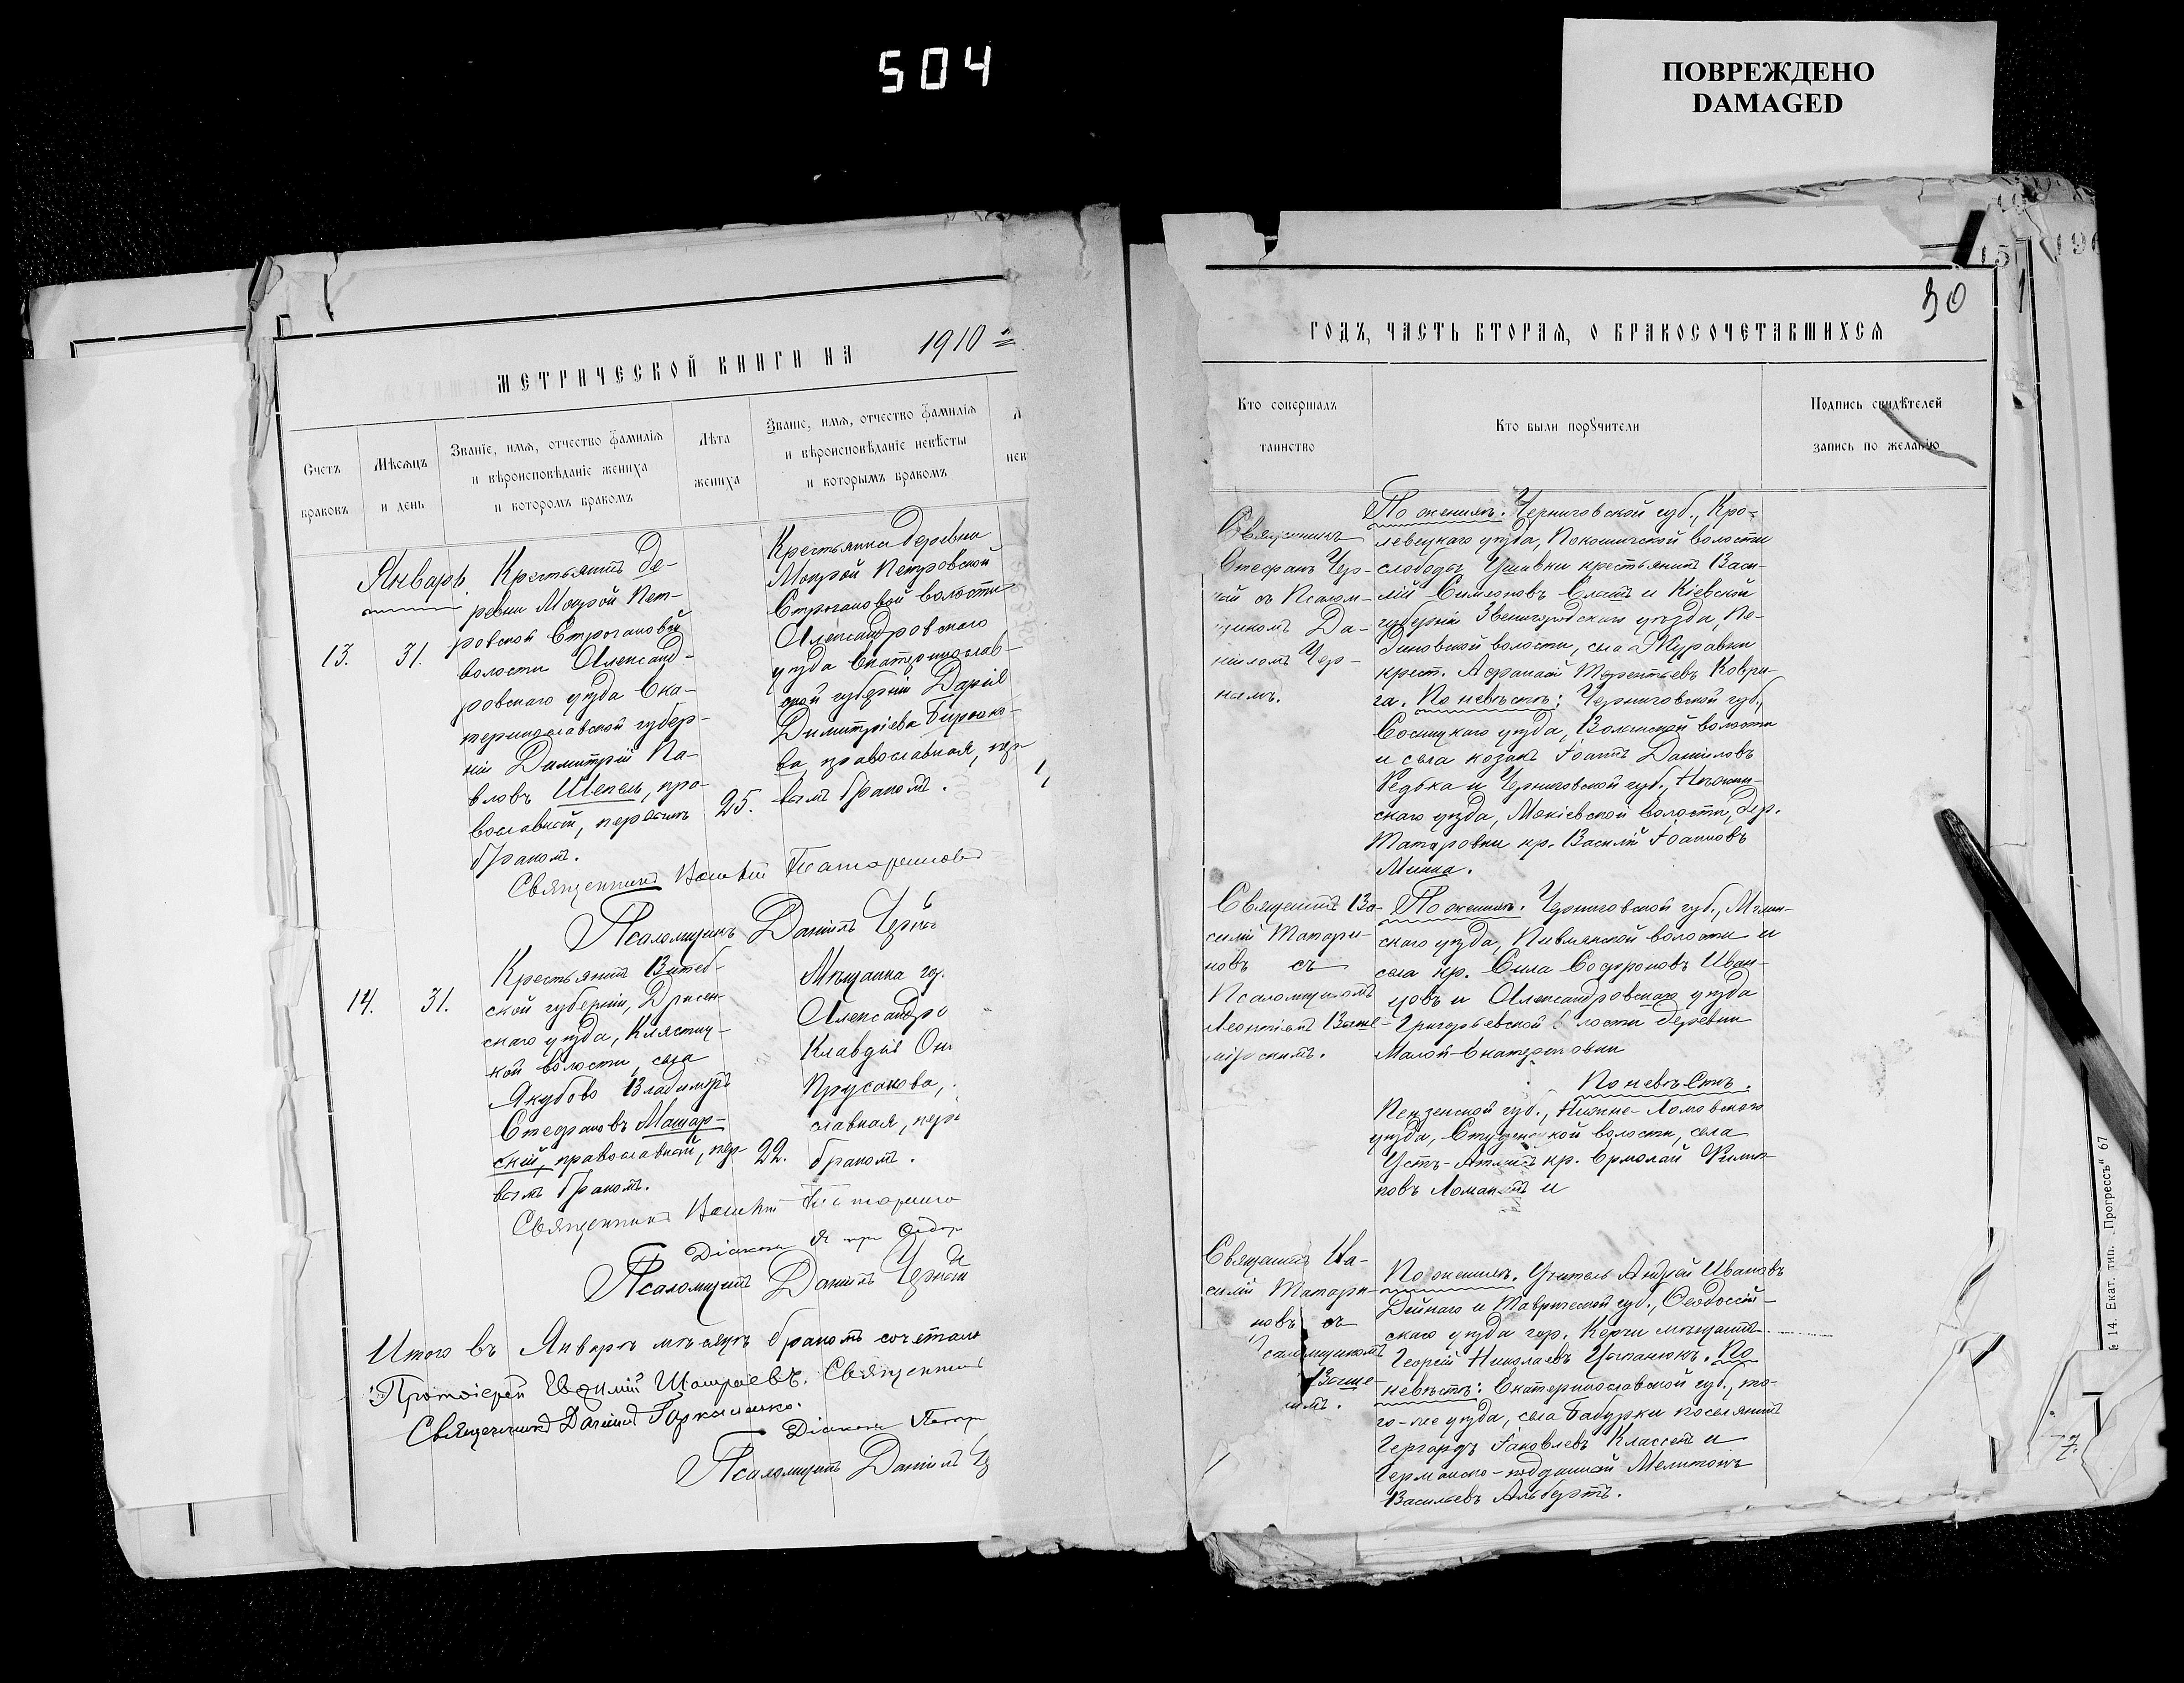 504
ПОВРЕЖДЕНО
DAMAGED
МЕТРИЧЕСКОЙ КНИГИ НА 1910
Счетъ браковъ
Мѣсяцъ и день
Званіе, имя, отчество фамилія
и вѣроисповѣданіе жениха
и которомъ бракомъ
Лѣта
жениха
Званіе, имя, отчество фамилія
и вѣроисповѣданіе невѣсты
и которымъ бракомъ
Январь.
13.
31.
Крестьянинъ де-
ревни Мокрой Пет-
ровской Строгановской
волости Александ-
ровскаго уѣзда Ека-
теринославской губер-
ніи Димитрій Па-
вловъ Шепель, пра-
вославный, первымъ
бракомъ.
25.
Крестьянка деревни
Мокрой Петровской
Строгановой волости
Александровскаго
уѣзда Екатеринослав-
ской губерніи Дарія
Димитріева Бирюко-
ва, православная, пер-
вымъ бракомъ.
Священникъ Василій Татариновъ
Псаломщикъ Даніилъ Черный
14.
31.
Крестьянинъ Витеб-
ской губерніи, Дрисен-
скаго уѣзда, Клястиц-
кой волости, села
Якубово Владиміръ
Стефановъ Машар-
скій, православный, пер-
вымъ бракомъ.
22.
Мѣщанка го.
Александро
Клавдія
Прусакова,
славная, пер
бракомъ.
Священникъ Василій
Діаконъ
Псаломщикъ Даніилъ Черный
Итого въ Январѣ мѣсяцѣ бракомъ сочетало
Протоіерей Евфимій Священник
Священникъ Даніилъ
Діаконъ
Псаломщикъ Даніилъ Ч
30
ГОДЪ, ЧАСТЬ ВТОРАЯ, О БРАКОСОЧЕТАВШИХСЯ
Кто совершалъ
таинство
Кто были поручители
Подпись свидѣтелей
запись по желанію
Священникъ
Стефанъ Чер-
ный съ Псалом-
щикомъ Да-
ніиломъ Чер-
нымъ.
По женихѣ: Черниговской губ., Кро-
левецкаго уѣзда, Покошичской волости
слободы крестьянинъ Васи-
лій Симеоновъ и Кіевской
губерніи Звенигородскаго уѣзда,
волости, села Журавки
крест. Афанасій Терентьевъ Коври-
га. По невѣстѣ: Черниговской губ.,
Сосницкаго уѣзда, Волынской волости
и села козакъ Іоаннъ Даниловъ
Редька и Черниговской губ., Нѣжин-
скаго уѣзда, Макіевской волости, дер.
Татаровки кр. Василій Іоанновъ
Минка.
Священникъ Ва-
силій Татари-
новъ съ
Псаломщикомъ
Леонтіемъ Выше-
мирскимъ.
По женихѣ: Черниговской губ., Мглин-
скаго уѣзда, волости и
села кр. Сила Софроновъ Иван-
цовъ и Александровскаго уѣзда
Григорьевской волости деревни
Малой-Екатериновки
По невѣстѣ.
Пензенской губ., Нижне-Ломовскаго
уѣзда, волости, села
Усть- кр. Ермолай Филип-
повъ Ломакинъ и
Священникъ Ва-
силій Татари-
новъ съ
Псаломщикомъ
Выше-
имъ.
По женихѣ. Учитель Андрей Ивановъ
и Таврической губ., Ѳеодосій-
скаго уѣзда гор. Керчи мѣщанинъ
Георгій Николаевъ По
невѣстѣ: Екатеринославской губ., то-
го-же уѣзда, села Бабурки поселянинъ
Гергардъ Іаковлевъ Классенъ и
Германско-подданный Мелитонъ
Васильевъ Альбертъ.
14. Екат. тип. „Прогрессъ“ 67